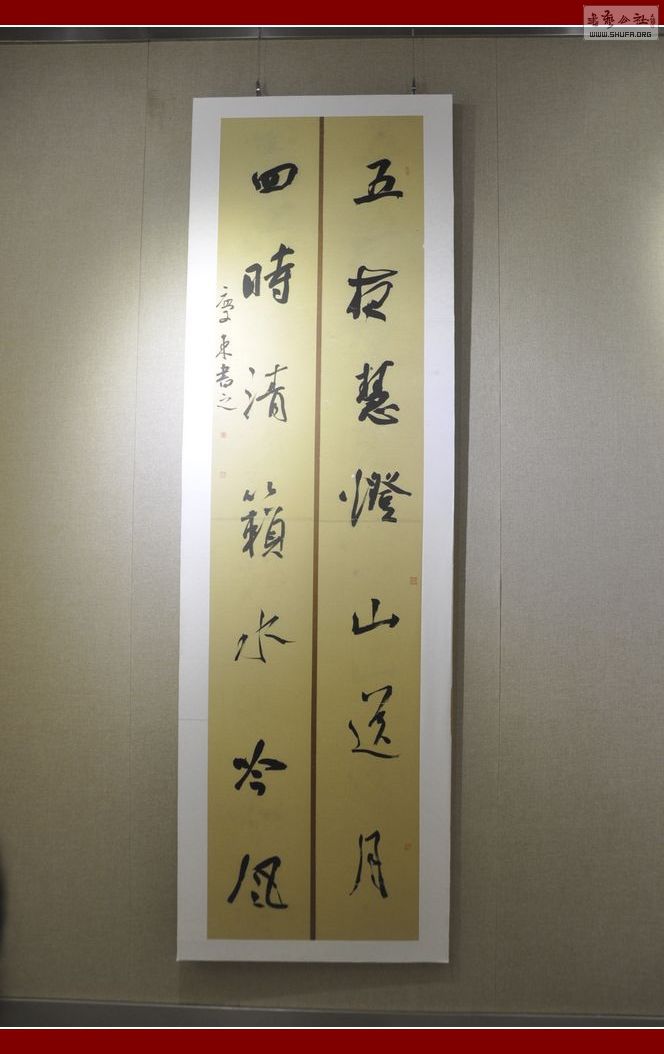 五夜慧燈山送月
四時清籟水吟風
慶東書之
書藝公社
WWW.SHUFA.ORG